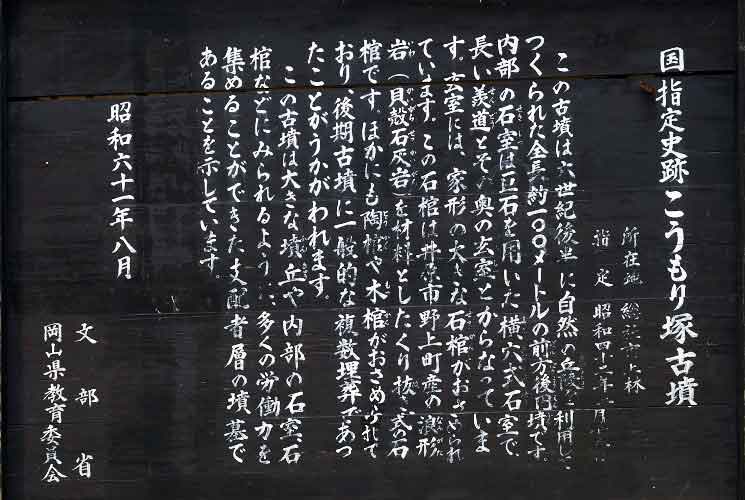 国指定史跡こうもり塚古墳
所在地 総社市上林
指定 昭和四十三年 月
この古墳は六世紀後半に自然の丘陵を利用して
つくられた全長約一〇〇メートルの前方後円墳です。
内部の石室は巨石を用いた横穴式石室で、
長い羨道とその奥の玄室とからなっていま
す。玄室には、家形の大きな石棺がおさめられ
ています。この石棺は井原市野上町産の浪形
岩(貝殻石灰岩)を材料としたくり抜き式の石
棺です。ほかにも陶棺や木棺がおさめられて
おり、後期古墳に一般的な複数埋葬であっ
たことがうかがわれます。
この古墳は大きな墳丘や内部の石室、石
棺などにみられるように、多くの労働力を
集めることができた支配者層の墳墓で
あることを示しています。
昭和六十一年八月
文部省
岡山県教育委員会